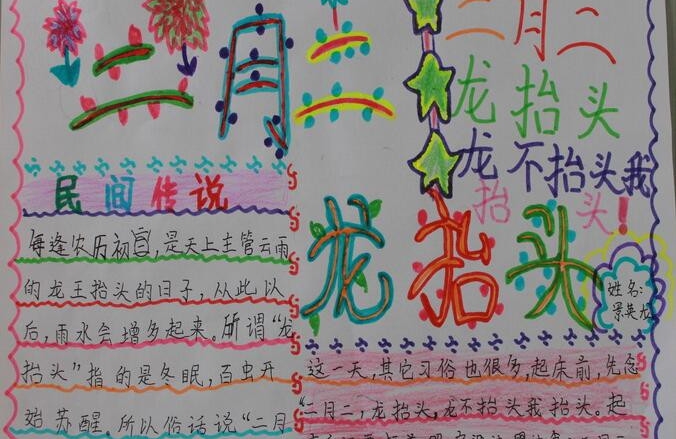 二月二
龙抬头
二月二
龙抬头
龙不抬头我
抬头！
民间传说
每逢农历初，是天上主管云雨
的龙王抬头的日子，从此以
后，雨水会增多起来。所谓“龙
抬头”指的是冬眠，百虫开
始苏醒。所以俗话说“二月
姓名：
景英龙
这一天，其它习俗也很多，起床前，先念
“二月二，龙抬头，龙不抬头我抬头。起